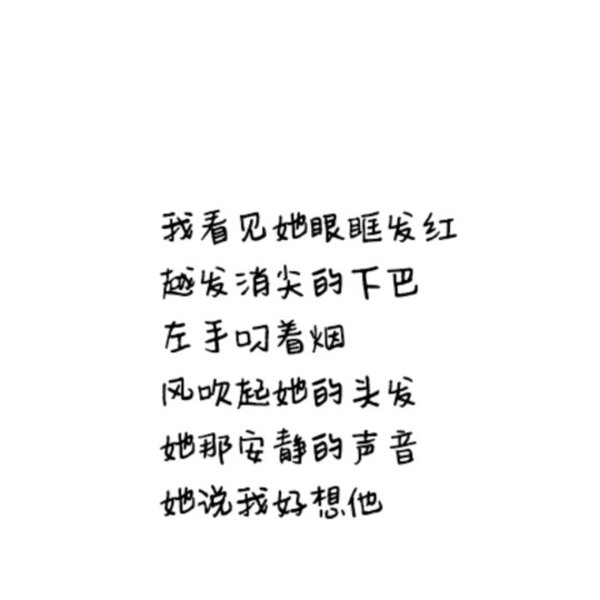 我看见她眼眶发红
越发消尖的下巴
左手叼着烟
风吹起她的头发
她那安静的声音
她说我好想他